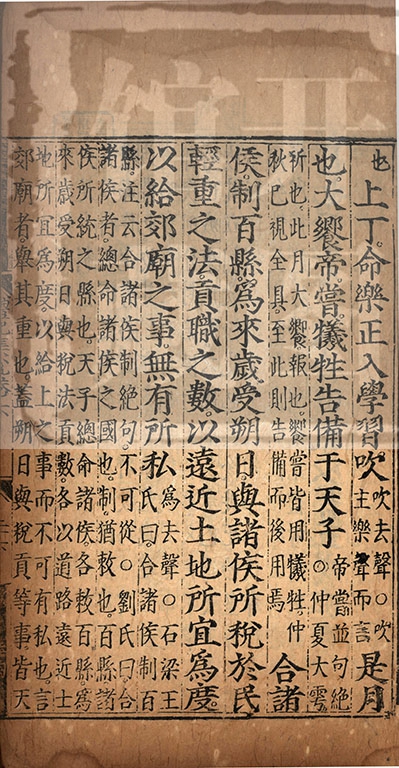 也上丁命樂正入學習吹吹去聲○吹主樂聲而言是月
也大饗帝嘗犧牲告備于天子帝嘗並句絕○仲夏大雩
祈也此月大饗報也饗嘗皆用犧牲仲
秋巳視全具至此則告備而後用焉合諸
侯制百縣爲來歲受朔日與諸侯所稅於民
輕重之法貢職之數以遠近土地所宜爲度
以給郊廟之事無有所私爲去聲○石梁王氏曰合諸侯制百
縣注云合諸侯制絕句不可從○劉氏曰合
諸侯者總命諸侯之國也制猶敕也百縣諸
侯所統之縣也天子總命諸侯各敕百縣爲
來歲受朔日與稅法貢數各以道路遠近土
地所宜爲度以給上之事而不可有私也言
郊廟者舉其重也蓋朔日與稅貢等事皆天